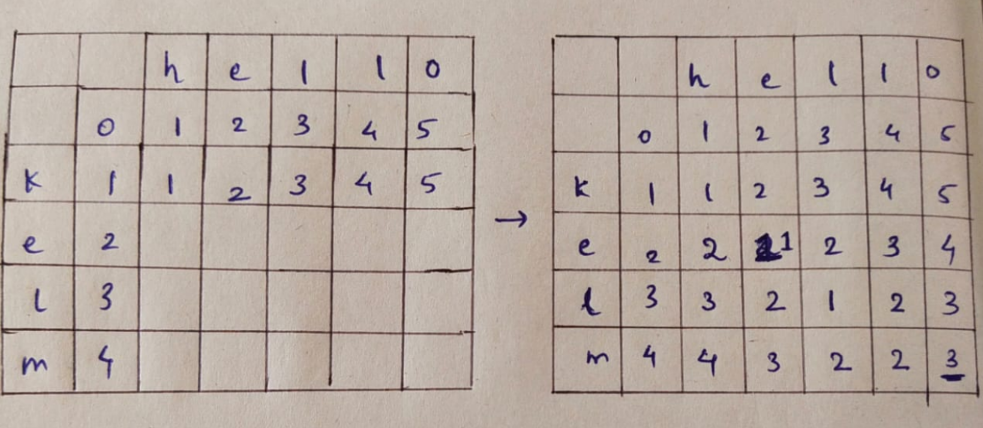 h e l l o
0 1 2 3 4 5
K 1 1 2 3 4 5
e 2
l 3
m 4
→
h e l l o
0 1 2 3 4 5
K 1 1 2 3 4 5
e 2 2 1 2 3 4
l 3 3 2 1 2 3
m 4 4 3 2 2 3